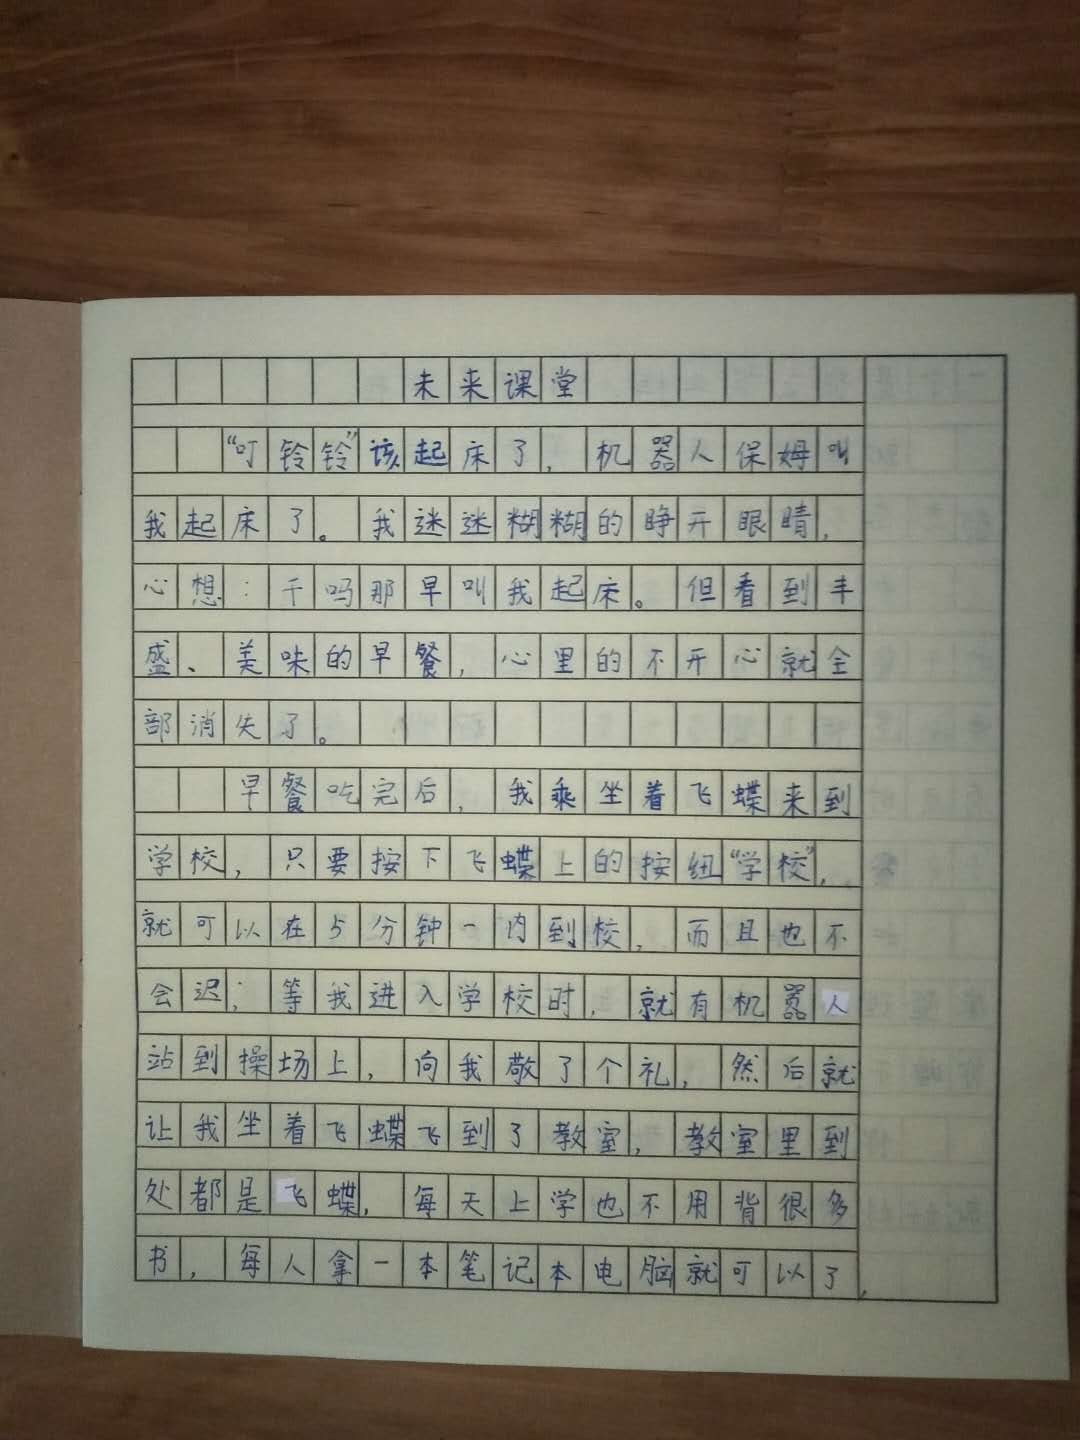 未来课堂
“叮铃铃”该起床了，机器人保姆叫
我起床了。我迷迷糊糊的睁开眼睛，
心想：干吗那早叫我起床。但看到丰
盛、美味的早餐，心里的不开心就全
部消失了。
早餐吃完后，我乘坐着飞蝶来到
学校，只要按下飞蝶上的按纽“学校”，
就可以在5分钟一内到校，而且也不
会迟；等我进入学校时，就有机器人
站到操场上，向我敬了个礼，然后就
让我坐着飞蝶飞到了教室，教室里到
处都是飞蝶，每天上学也不用背很多
书，每人拿一本笔记本电脑就可以了，